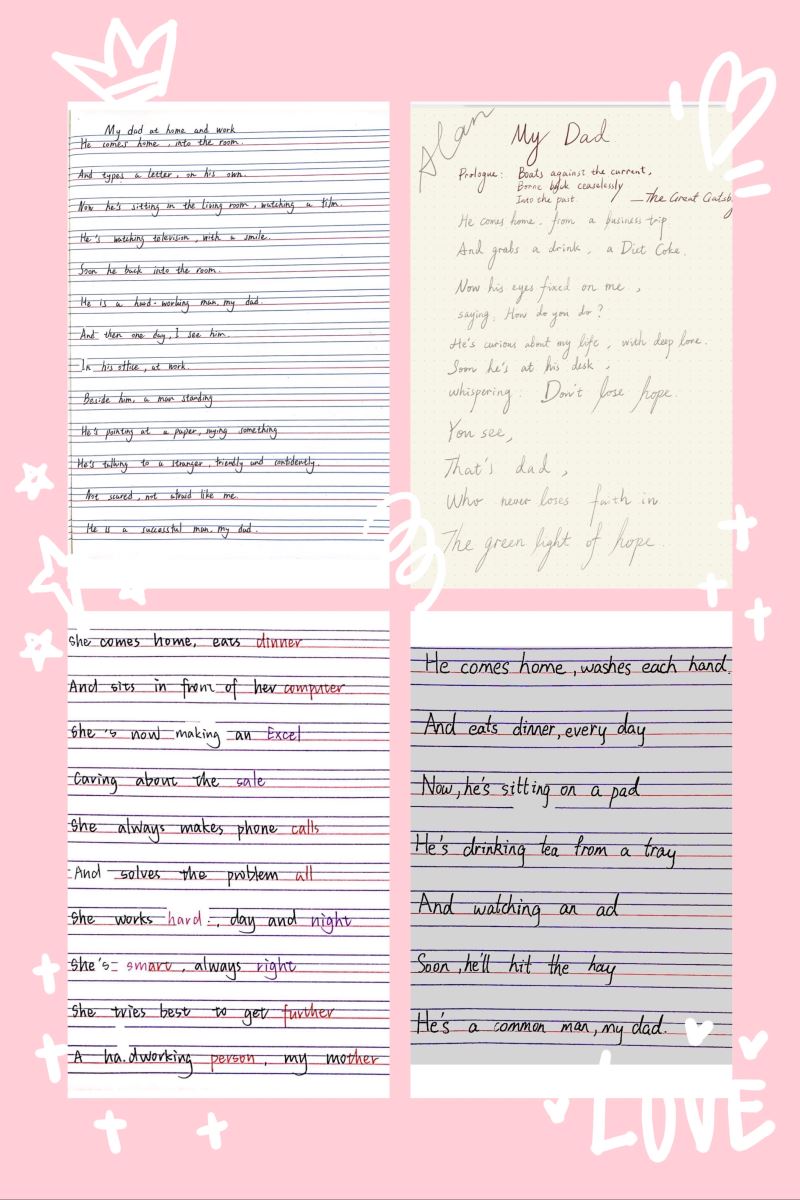 My dad at home and work
He comes home, into the room.
And types a letter, on his own.
Now he's sitting in the living room, watching a film.
He's watching television, with a smile.
Soon he back into the room.
He is a hard-working man, my dad.
And then one day, I see him.
In his office, at work.
Beside him, a man standing
He's pointing at a paper, saying something
He's talking to a stranger, friendly and confidently.
Not scared, not afraid like me.
He is a successful man, my dad.
Alan
My Dad
Prologue: Boats against the current,
Borne back ceaselessly
Into the past. —The Great Gatsby
He comes home, from a business trip
And grabs a drink, a Diet Coke.
Now his eyes fixed on me,
saying: How do you do?
He's curious about my life, with deep love.
Soon he's at his desk,
whispering: Don't lose hope.
You see,
That's dad,
Who never loses faith in
The green light of hope.
She comes home, eats dinner
And sits in front of her computer
She's now making an Excel
Caring about the sale
She always makes phone calls
And solves the problem all
She works hard, day and night
She's smart, always right
She tries best to get further
A ha.dworking person, my mother
He comes home, washes each hand.
And eats dinner, every day
Now, he's sitting on a pad
He's drinking tea from a tray
And watching an ad
Soon, he'll hit the hay
He's a common man, my dad.
LOVE